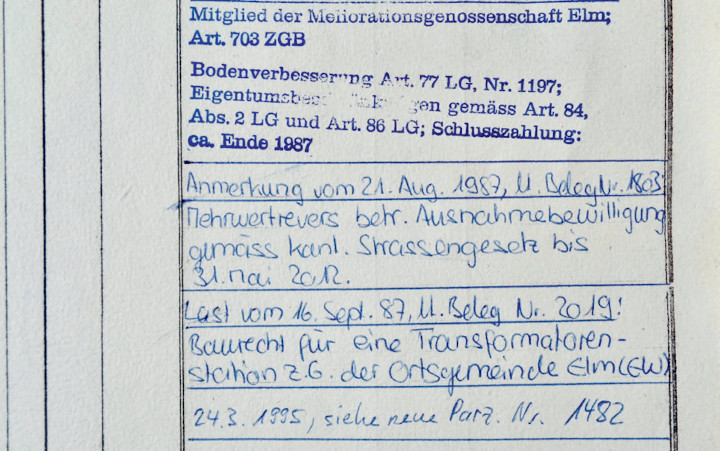 Mitglied der Meliorationsgenossenschaft Elm;
Art. 703 ZGB
Bodenverbesserung Art. 77 LG, Nr. 1197;
Eigentumsbeschränkungen gemäss Art. 84,
Abs. 2 LG und Art. 86 LG; Schlusszahlung:
ca. Ende 1987
Anmerkung vom 21. Aug. 1987, lt. Beleg Nr. 1803:
Mehrwertrevers betr. Ausnahmebewilligung
gemäss kant. Strassengesetz bis
31. Mai 2012.
Last vom 16. Sept. 87, lt. Beleg Nr. 2019:
Baurecht für eine Transformatoren-
station z.G. der Ortsgemeinde Elm (EW)
24.3. 1995, siehe neue Parz. Nr. 1482